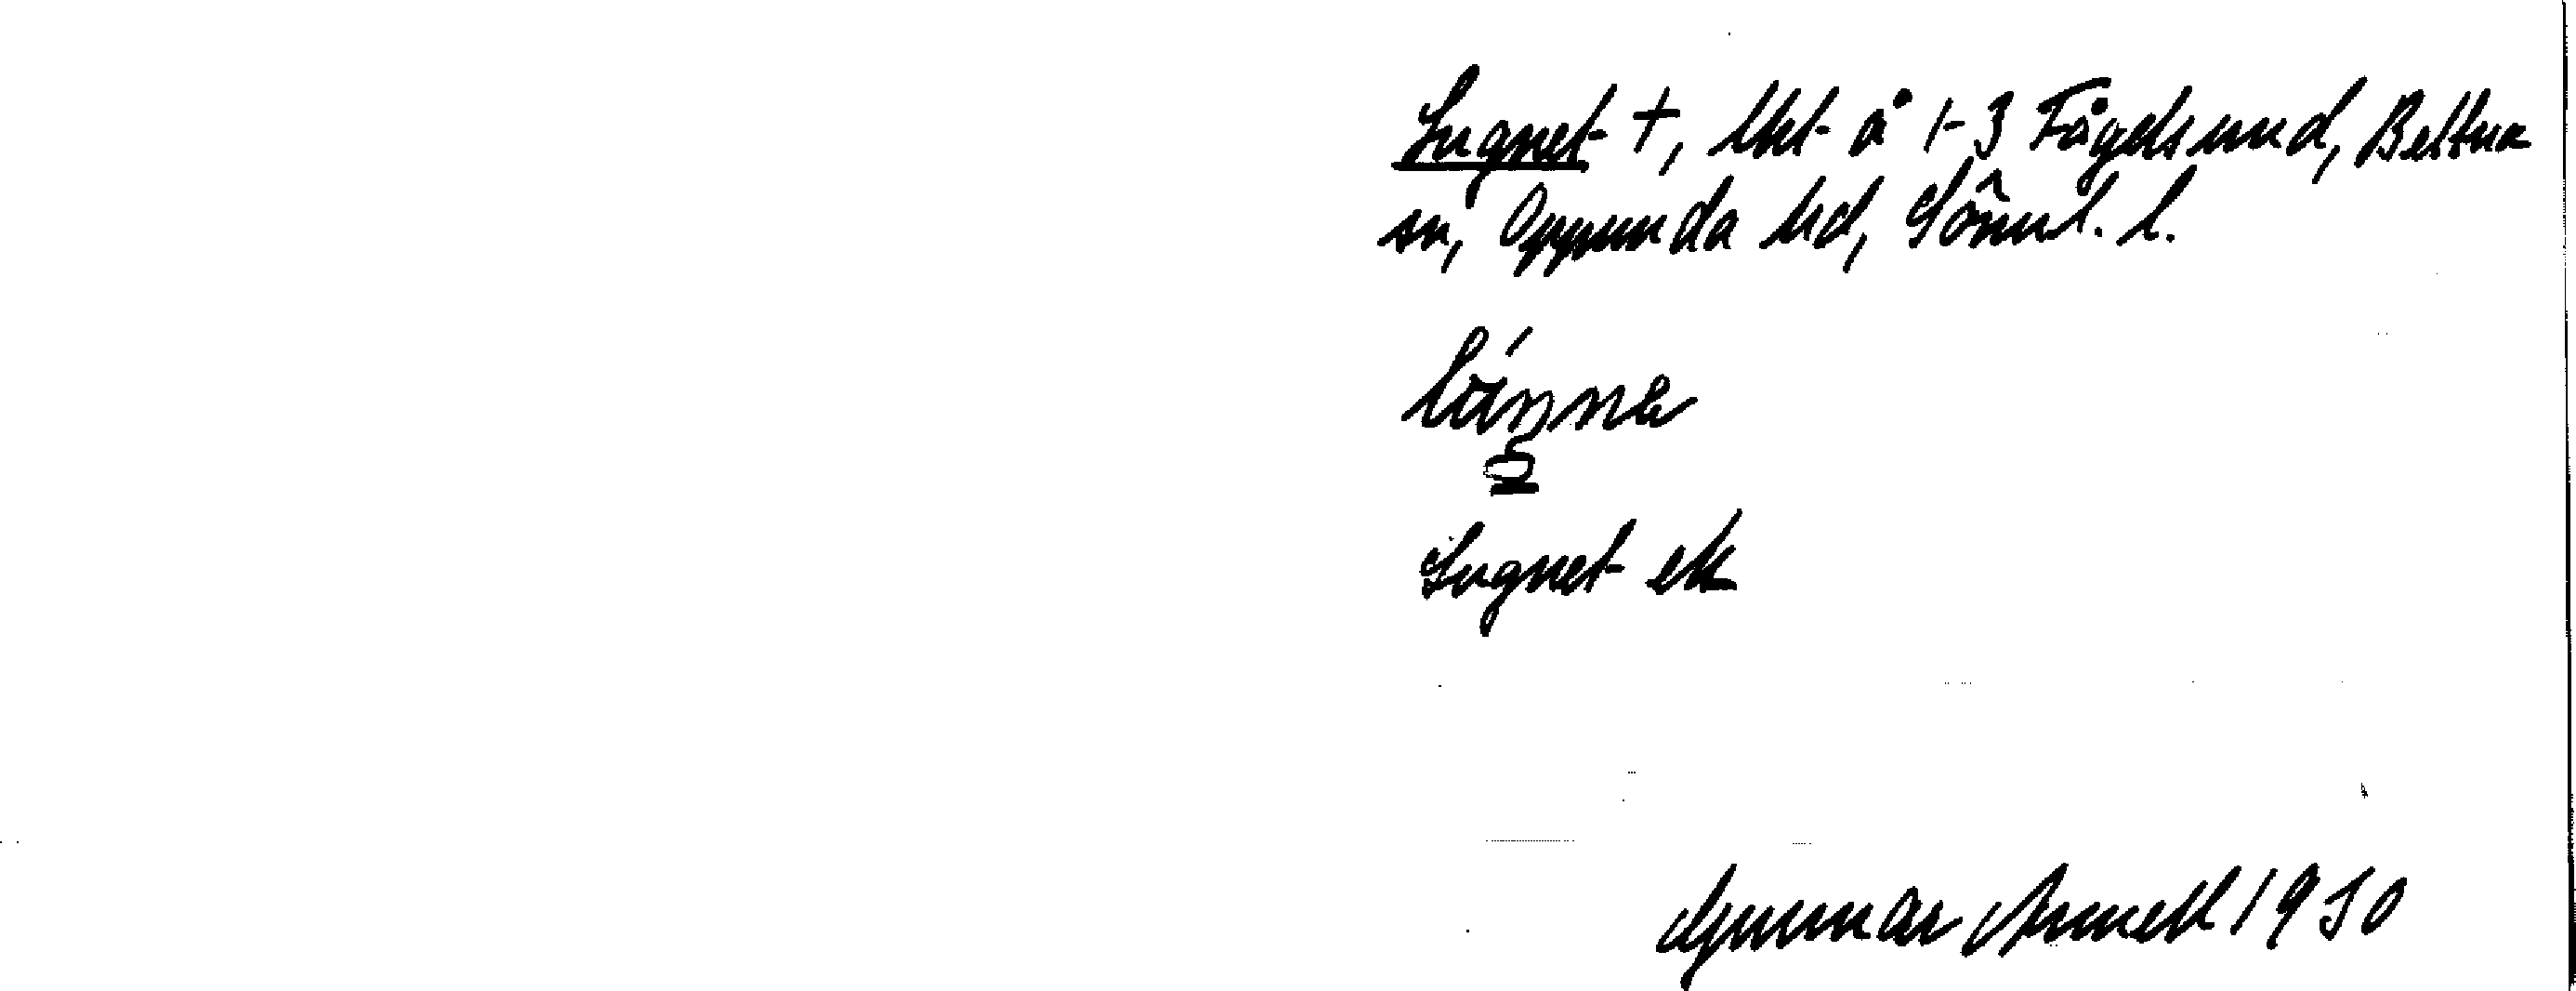 Lugnet +, lht å 1-3 Fågelsund, Bettna
sn, Oppunda hd, Söml. l.
Lugnet ek
Gunnar Arnell 1930